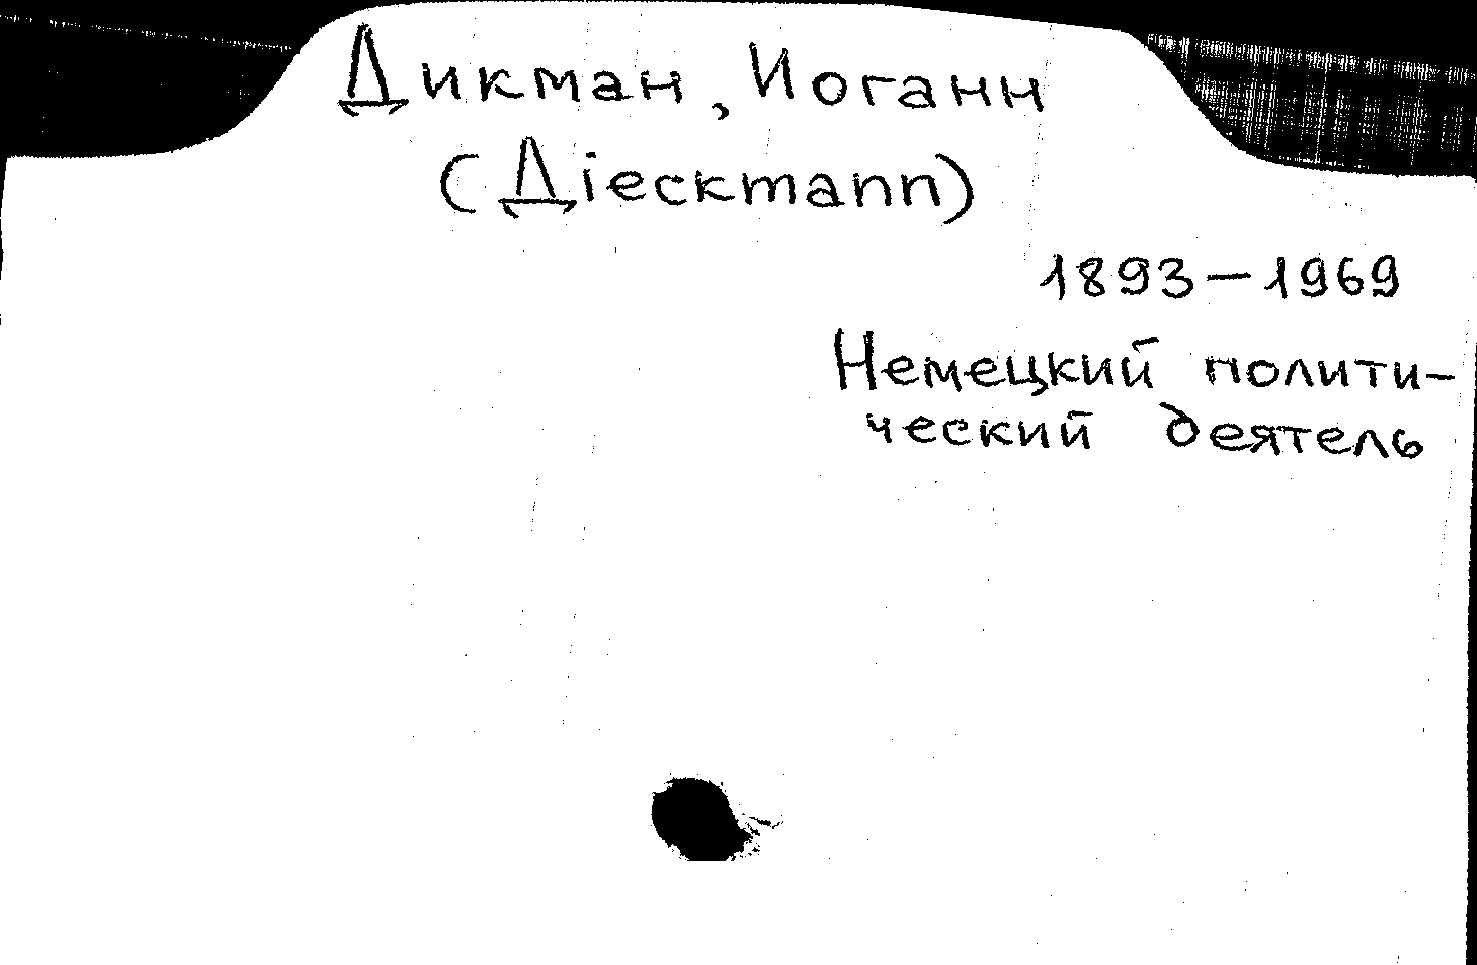 Дикман, Иоганн
(Діeckmann)
1893-1969
Немецкий полити-
ческий деятель